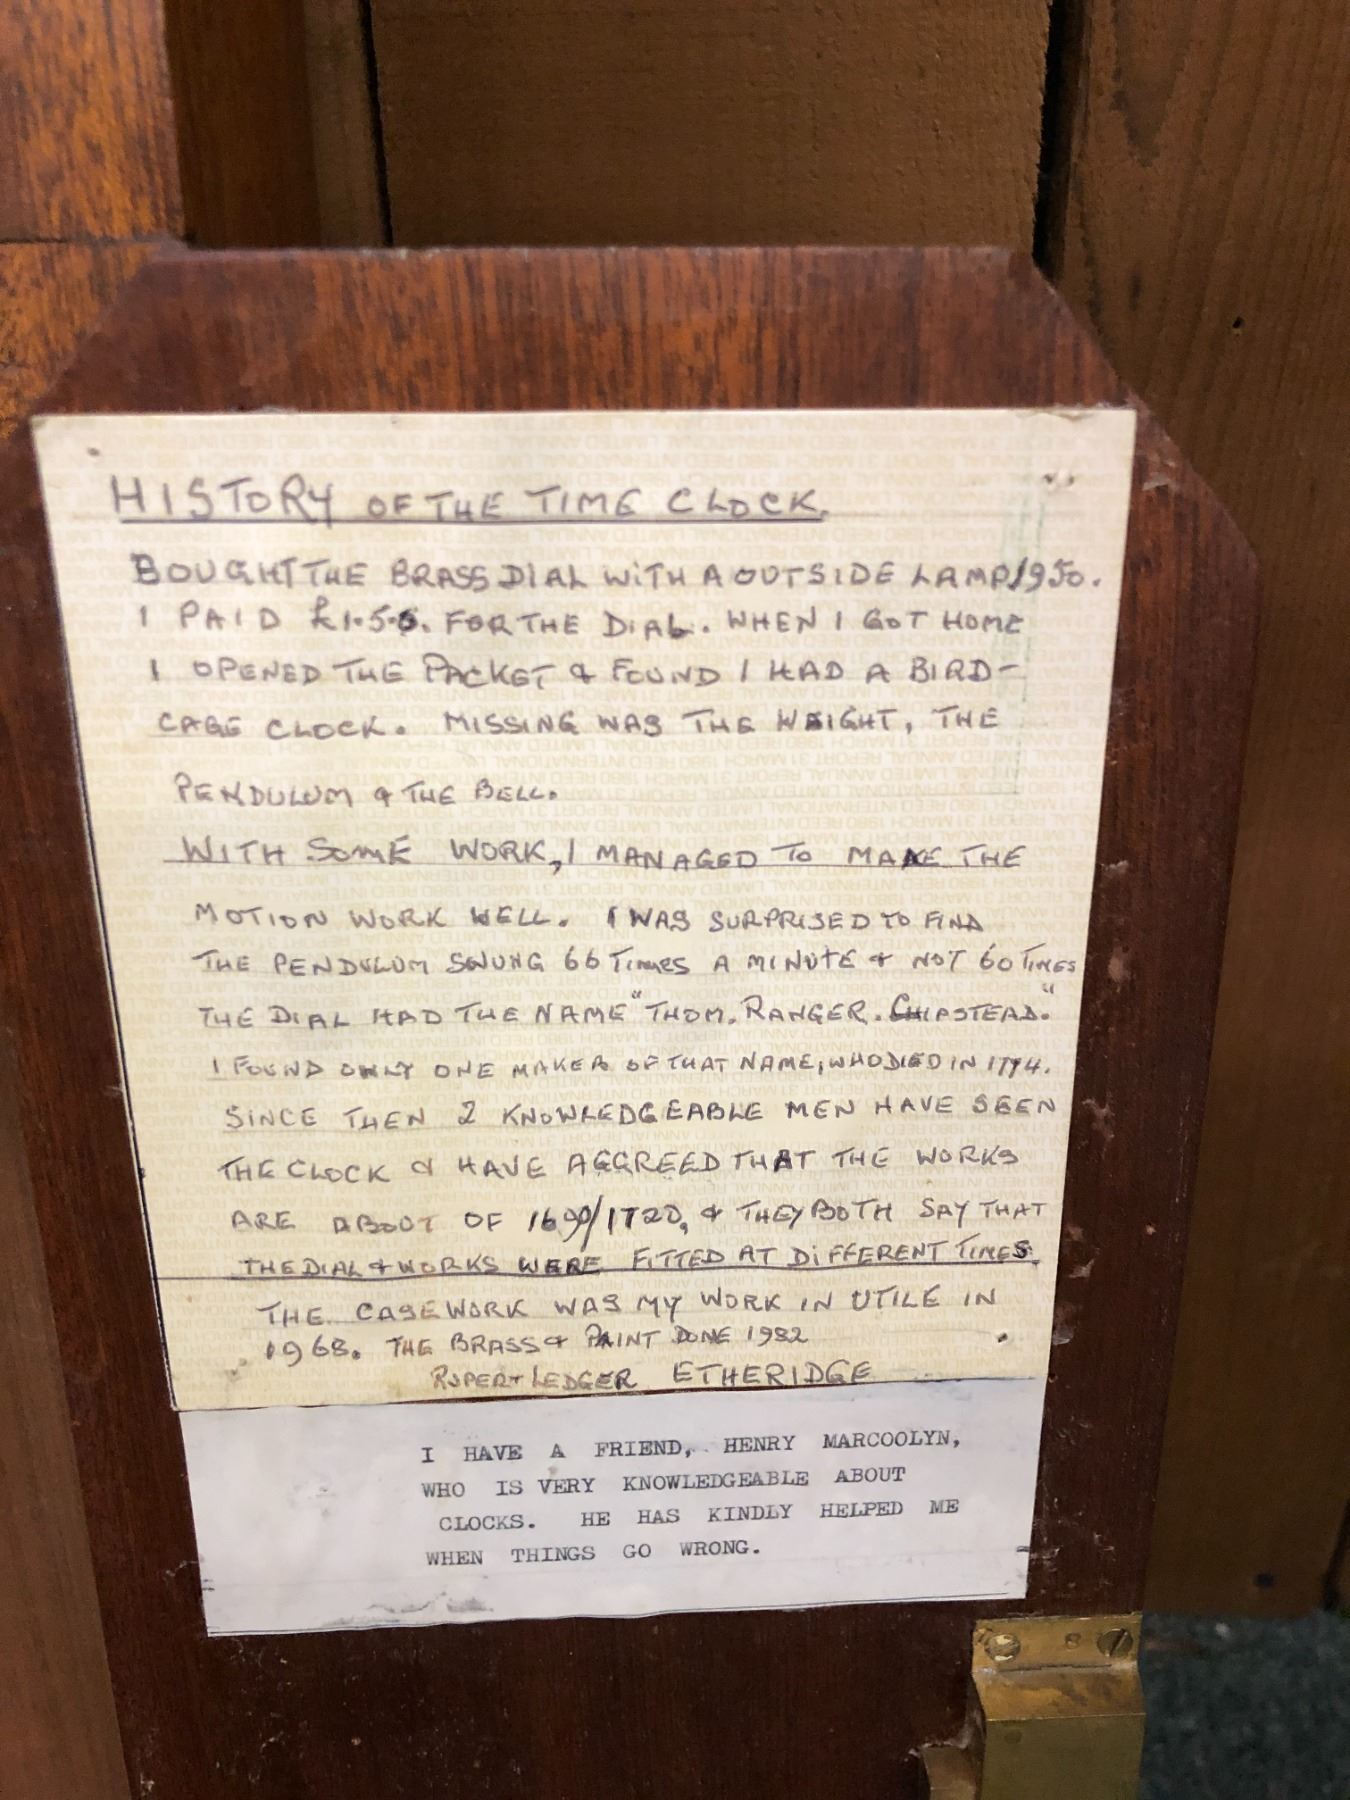 HISTORY OF THE TIME CLOCK.
BOUGHT THE BRASS DIAL WITH A OUTSIDE LAMP 1950.
I PAID £1.5.6. FOR THE DIAL. WHEN I GOT HOME
I OPENED THE PACKET & FOUND I HAD A BIRD-
CAGE CLOCK. MISSING WAS THE WEIGHT, THE
PENDULUM & THE BELL.
WITH SOME WORK, I MANAGED TO MAKE THE
MOTION WORK WELL. I WAS SURPRISED TO FIND
THE PENDULUM SWUNG 66 TIMES A MINUTE & NOT 60 TIMES
THE DIAL HAD THE NAME "THOM. RANGER. CHIPSTEAD."
I FOUND ONLY ONE MAKER OF THAT NAME, WHO DIED IN
SINCE THEN 2 KNOWLEDGEABLE MEN HAVE SEEN
THE CLOCK & HAVE AGGREED THAT THE WORKS
ARE ABOUT OF 1690/1720, & THEY BOTH SAY THAT
THE DIAL & WORKS WERE FITTED AT DIFFERENT TIMES.
THE CASEWORK WAS MY WORK IN UTILE IN
1968. THE BRASS & PAINT DONE 1982
RUPERT LEDGER ETHERIDGE
I HAVE A FRIEND, HENRY MARCOOLYN,
WHO IS VERY KNOWLEDGEABLE ABOUT
CLOCKS. HE HAS KINDLY HELPED ME
WHEN THINGS GO WRONG.